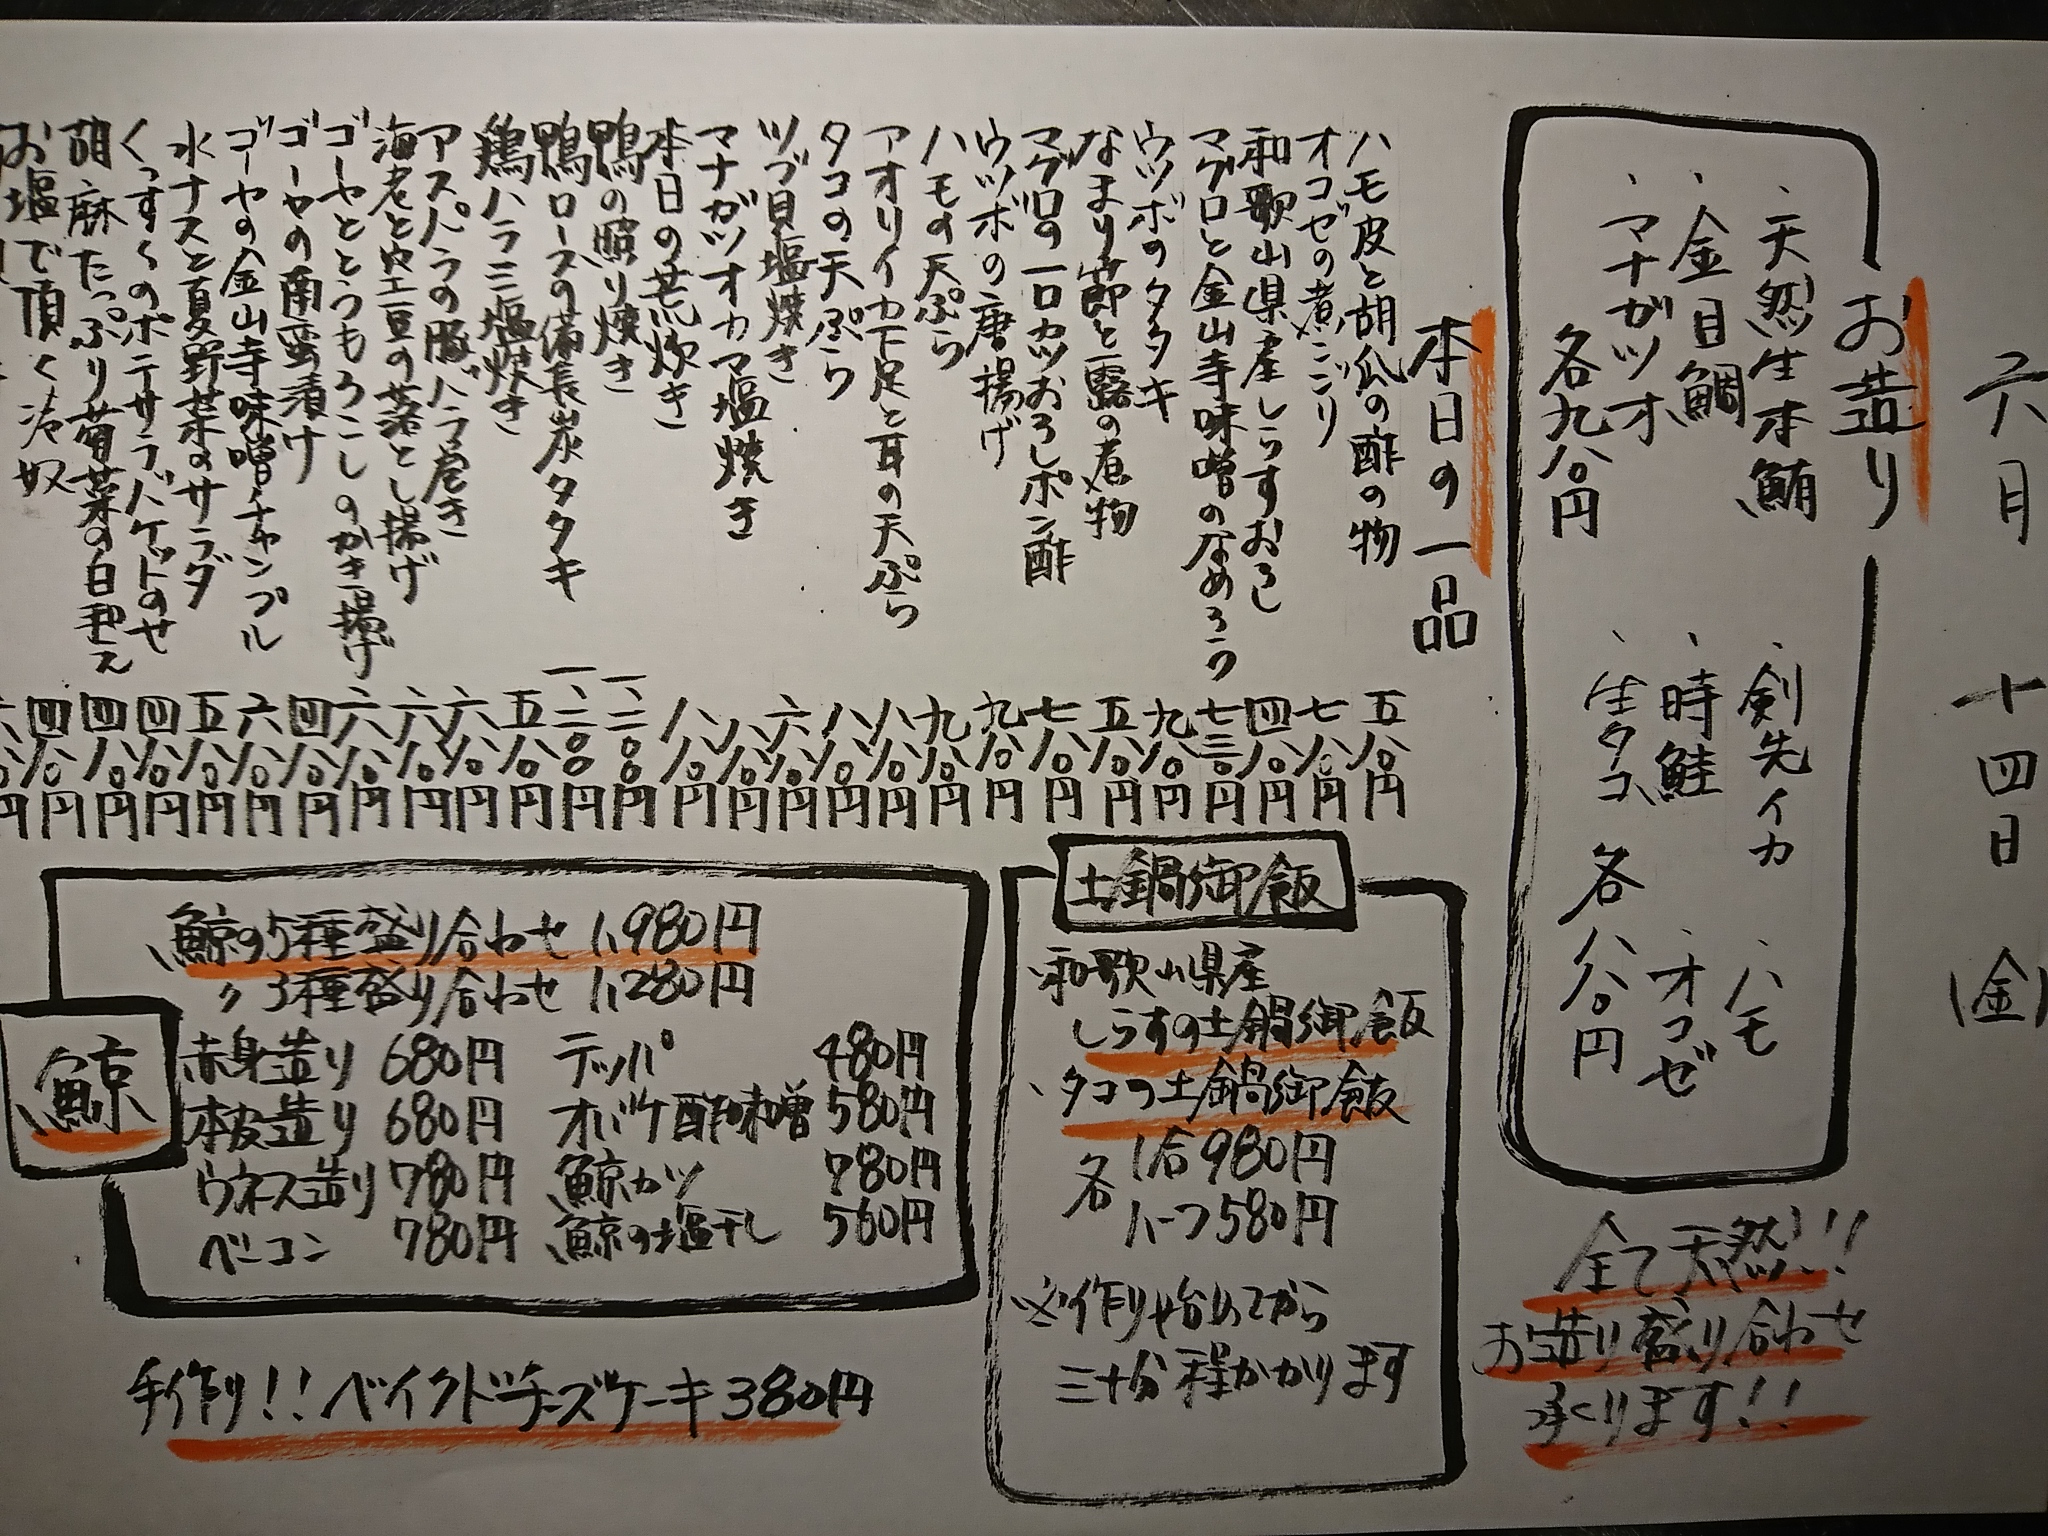 六月 十四日 (金)
お造り
・天然生本鮪
・金目鯛
・マナガツオ
各九八〇円
・剣先イカ
・時鮭
・生タコ
・ハモ
・オコゼ
各八八〇円
全て天然!!
お造り盛り合わせ
承ります!!
本日の一品
ハモ皮と胡瓜の酢の物 五八〇円
オコゼの煮こごり 七八〇円
和歌山県産しらすおろし 四八〇円
マグロと金山寺味噌のなめろう 七三〇円
ウツボのタタキ 九八〇円
なまり節と露の煮物 五八〇円
マグロの一口カツおろしポン酢 七八〇円
ウツボの唐揚げ 九八〇円
ハモの天ぷら 九八〇円
アオリイカ下足と耳の天ぷら 八八〇円
タコの天ぷら 八八〇円
ツブ貝塩焼き 六八〇円
マナガツオカマ塩焼き 八八〇円
本日の荒炊き 八八〇円
鴨の照り焼き 一、二〇〇円
鴨ロースの備長炭タタキ 一、二〇〇円
鶏ハラミ塩焼き 五八〇円
アスパラの豚バラ巻き 六八〇円
海老と空豆の落とし揚げ 六八〇円
ゴーヤととうもろこしのかき揚げ 六八〇円
ゴーヤの南蛮漬け 四八〇円
ゴーヤの金山寺味噌チャンプル 六八〇円
水ナスと夏野菜のサラダ 五八〇円
くっすくのポテサラバケットのせ 四八〇円
胡麻たっぷり菊菜の白和え 四八〇円
お塩で頂く冷奴 四八〇円
土鍋御飯
・和歌山県産
しらすの土鍋御飯
・タコの土鍋御飯
各 1合980円
ハーフ580円
※作り始めてから
三十分程かかります
鯨
・鯨の5種盛り合わせ 1,980円
〃 3種盛り合わせ 1,280円
赤身造り 680円 テッパ 480円
本皮造り 680円 オバケ酢味噌 580円
ウネス造り 780円 鯨カツ 780円
ベーコン 780円 鯨の塩干し 560円
手作り!!ベイクドチーズケーキ380円